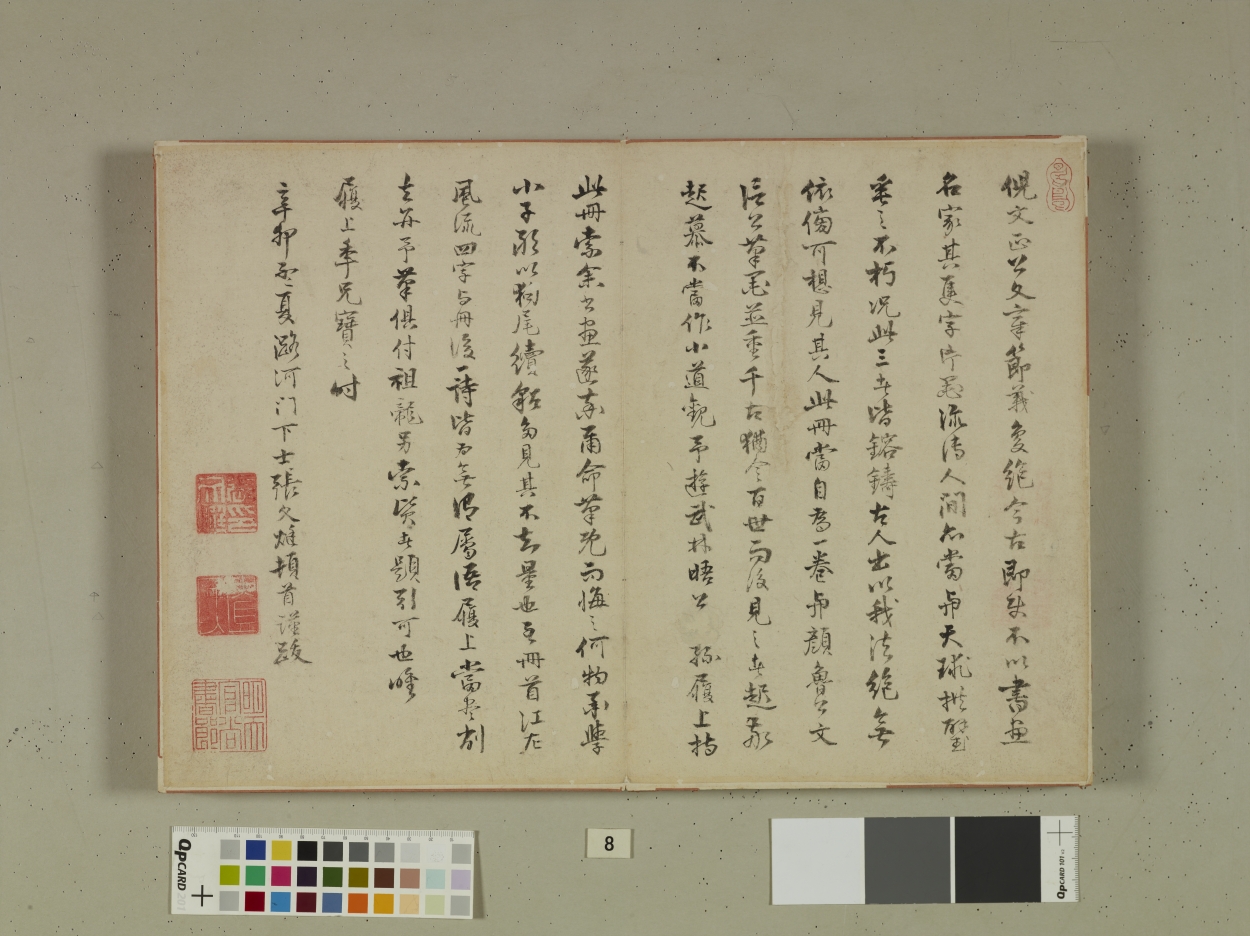 倪文正公文章節義夐絕今古即使不以書畫
名家其隻字片墨流傳人間亦當與天球拱璧
垂之不朽況此三者皆鎔鑄古人出以我法絕無
依傍可想見其人此冊當自為一卷與顏魯公文
信公筆墨並重千古猶今百世而後見之者起敬
起慕不當作小道觀予遊武林晤公 孫履上持
此冊索余書畫遂爾命筆既而悔之何物末學
小子敢以狗尾續貂多見其不知量也至冊首江左
風流四字與冊後一詩皆為無謂屬語履上當盡削
去并予筆俱付祖龍另索賢者題引可也唯
履上季兄寶之時
辛卯孟夏潞河门下士張文炷頓首謹跋
8
QPCARD 101
QPCARD 101